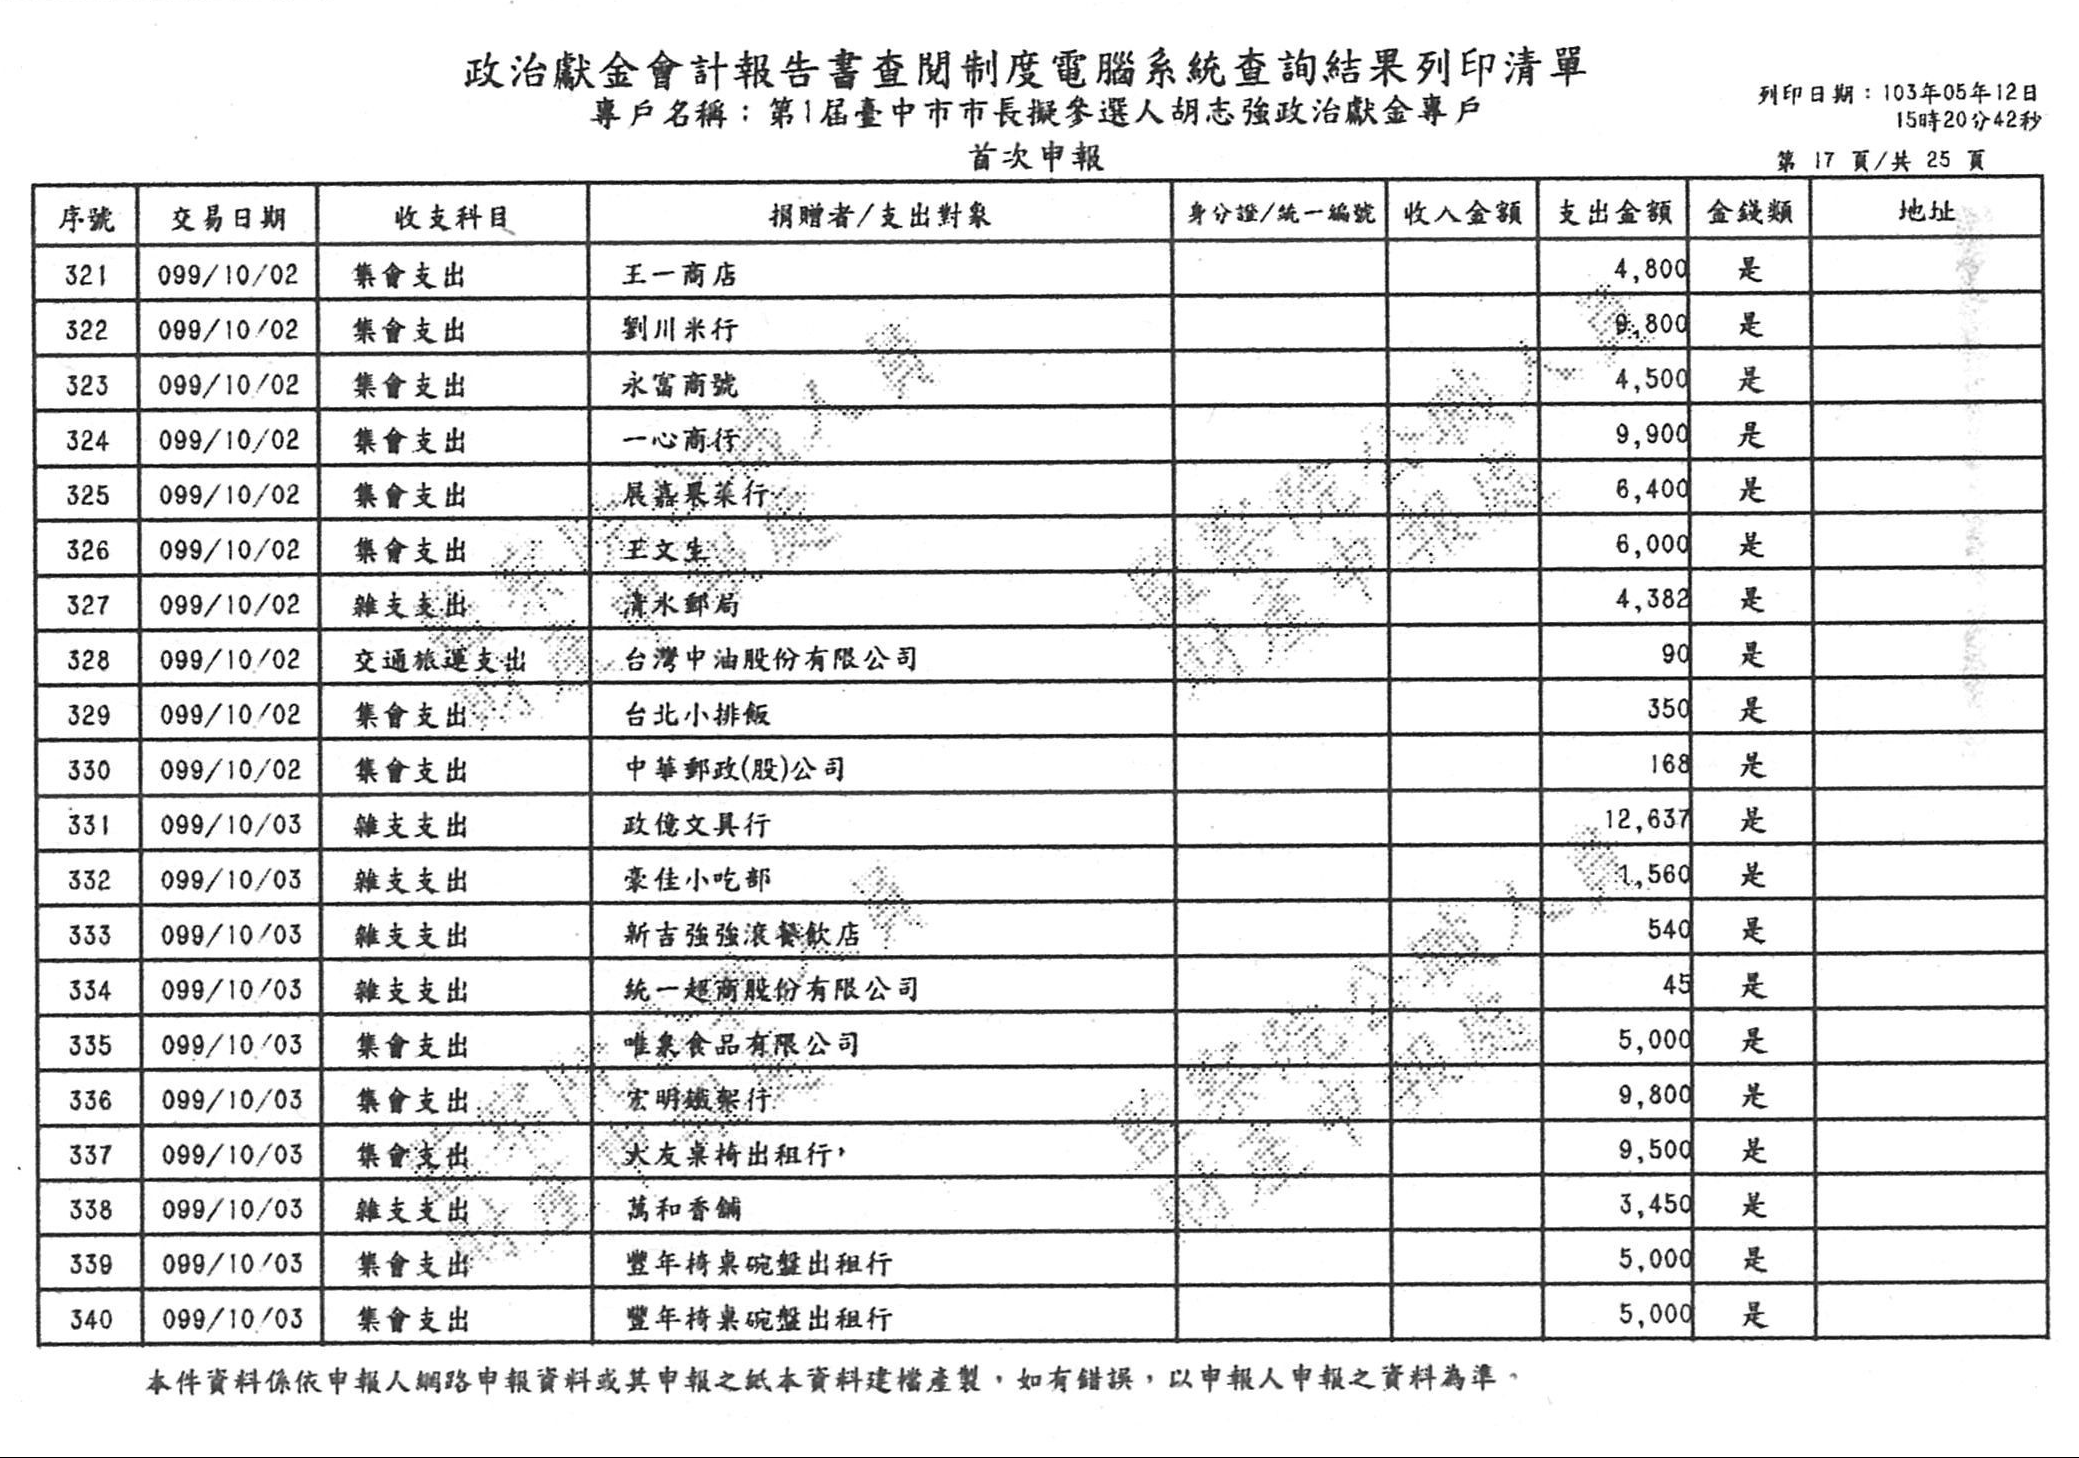 政治獻金會計報告書查閱制度電腦系統查詢結果列印清單
專戶名稱：第1屆臺中市市長擬參選人胡志強政治獻金專戶
首次申報
列印日期：103年05年12日
15時20分42秒
第 17 頁/共 25 頁
序號 交易日期 收支科目 捐贈者/支出對象 身分證/統一編號 收入金額 支出金額 金錢類 地址
321 099/10/02 集會支出 王一商店 4,800 是
322 099/10/02 集會支出 劉川米行 9,800 是
323 099/10/02 集會支出 永富商號 4,500 是
324 099/10/02 集會支出 一心商行 9,900 是
325 099/10/02 集會支出 展嘉果菜行 6,400 是
326 099/10/02 集會支出 王文生 6,000 是
327 099/10/02 雜支支出 清水郵局 4,382 是
328 099/10/02 交通旅運支出 台灣中油股份有限公司 90 是
329 099/10/02 集會支出 台北小排飯 350 是
330 099/10/02 集會支出 中華郵政(股)公司 168 是
331 099/10/03 雜支支出 政億文具行 12,637 是
332 099/10/03 雜支支出 豪佳小吃部 1,560 是
333 099/10/03 雜支支出 新吉強強滾餐飲店 540 是
334 099/10/03 雜支支出 統一超商股份有限公司 45 是
335 099/10/03 集會支出 唯泉食品有限公司 5,000 是
336 099/10/03 集會支出 宏明鐵架行 9,800 是
337 099/10/03 集會支出 大友桌椅出租行, 9,500 是
338 099/10/03 雜支支出 萬和香舖 3,450 是
339 099/10/03 集會支出 豐年椅桌碗盤出租行 5,000 是
340 099/10/03 集會支出 豐年椅桌碗盤出租行 5,000 是
本件資料係依申報人網路申報資料或其申報之紙本資料建檔產製，如有錯誤，以申報人申報之資料為準。